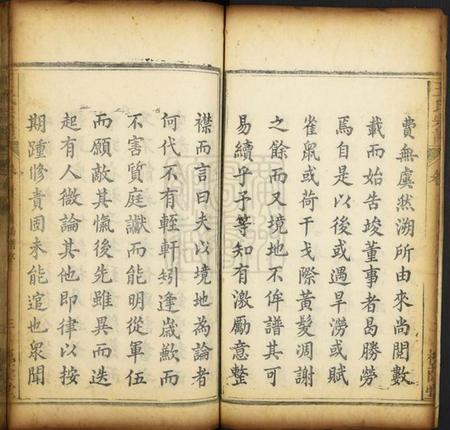 費無虞然溯所由來尚閱數
載而始告竣董事者曷勝勞
焉自是以後或遇旱澇或賦
雀鼠或荷干戈際黃髮凋謝
之餘而又境地不侔譜其可
易續乎予等知有激勵意整
襟而言曰夫以境地為論者
何代不有輊軒矧逢歲歉而
不害質庭讞而能明從軍伍
而願敵其愾後先雖異而迭
起有人微論其他即律以按
期踵修責固未能逭也眾聞